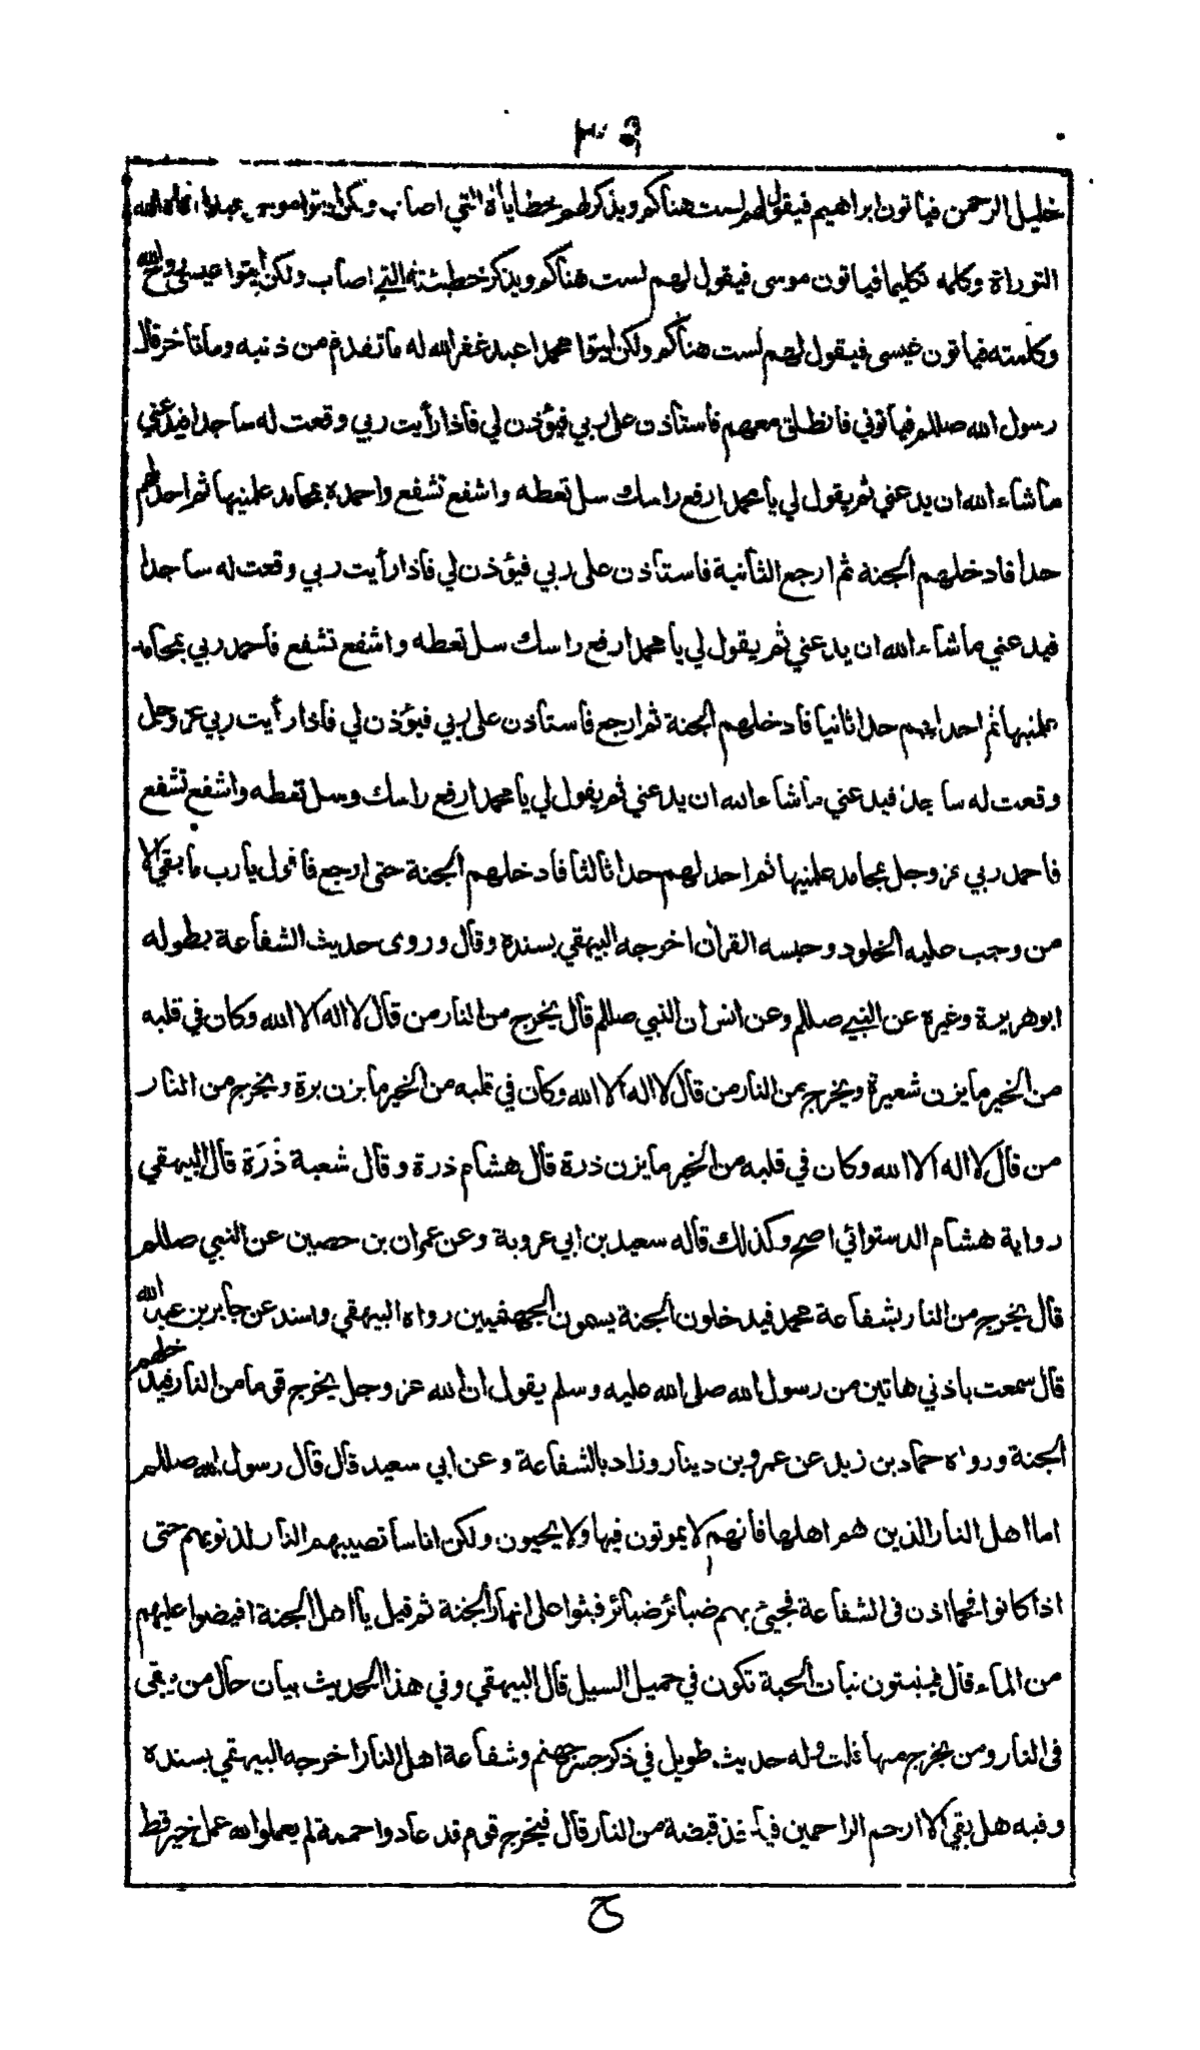 خليل الرحمن فيأتون ابراهيم فيقول لهم لست هناكم ويذكر لهم خطاياه التي اصاب ولكن ايتوا موسى عبدا اتاه الله
التوراة وكلمه تكليما فياتون موسى فيقول لهم لست هناكم ويذكر خطيئته التي اصاب ولكن ايتوا عيسى روح الله
وكلمته فياتون عيسى فيقول لهم لست هناكم ولكن ايتوا محمدا عبد غفر الله له ما تقدم من ذنبه وما تأخر قال
رسول الله صللم فيأتوني فانطلق معهم فاستأذن على ربي فيؤذن لي فاذا رأيت ربي وقعت له ساجدا فيدعني
ما شاء الله ان يدعني ثم يقول لي يا محمد ارفع راسك سل تعطه واشفع تشفع واحمده بمحامد علمنيها ثم احد لهم
حدا فادخلهم الجنة ثم ارجع الثانية فاستاذن على ربي فيؤذن لي فاذا رأيت ربي وقعت له ساجدا
فيدعني ما شاء الله ان يدعني ثم يقول لي يا محمد ارفع راسك سل تعطه واشفع تشفع فاحمد ربي بمحامد
علمنيها ثم احد لهم حدا ثانيا فادخلهم الجنة ثم ارجع فاستاذن على ربي فيؤذن لي فاذا رأيت ربي عز وجل
وقعت له ساجدا فيدعني ما شاء الله ان يدعني ثم يقول لي يا محمد ارفع راسك وسل تعطه واشفع تشفع
فاحمد ربي عز وجل بمحامد علمنيها ثم احد لهم حدا ثالثا فادخلهم الجنة حتى ارجع فاقول يا رب ما بقي الا
من وجب عليه الخلود وحبسه القرآن اخرجه البيهقي بسنده وقال وروى حديث الشفاعة بطوله
ابو هريرة وغيره عن النبي صللم وعن انس ان النبي صللم قال يخرج من النار من قال لا اله الا الله وكان في قلبه
من الخير ما يزن شعيرة ويخرج من النار من قال لا اله الا الله وكان في قلبه من الخير ما يزن برة ويخرج من النار
من قال لا اله الا الله وكان في قلبه من الخير ما يزن ذرة قال هشام ذرة وقال شعبة ذُرَة قال البيهقي
رواية هشام الدستوائي اصح وكذلك قاله سعيد بن ابي عروبة وعن عمران بن حصين عن النبي صللم
قال يخرج من النار بشفاعة محمد فيدخلون الجنة يسمون الجهنميين رواه البيهقي واسند عن جابر بن عبد الله
قال سمعت باذني هاتين من رسول الله صلى الله عليه وسلم يقول ان الله عز وجل يخرج قوما من النار فيدخلهم
الجنة ورواه حماد بن زيد عن عمرو بن دينار وزاد بالشفاعة وعن ابي سعيد قال قال رسول الله صللم
اما اهل النار الذين هم اهلها فانهم لا يموتون فيها ولا يحيون ولكن اناسا تصيبهم النار لذنوبهم حتى
اذا كانوا فحما اذن في الشفاعة فجيئ بهم ضبائر ضبائر فبثوا على انهار الجنة ثم قيل يا اهل الجنة افيضوا عليهم
من الماء قال فينبتون نبات الحبة تكون في حميل السيل قال البيهقي وفي هذا الحديث بيان حال من يبقى
في النار ومن يخرج منها قلت وله حديث طويل في ذكر جسر جهنم وشفاعة اهل النار اخرجه البيهقي بسنده
وفيه هل بقي الا ارحم الراحمين فيأخذ قبضة من النار قال فيخرج قوم قد عادوا حممة لم يعملوا لله عمل خير قط
ح